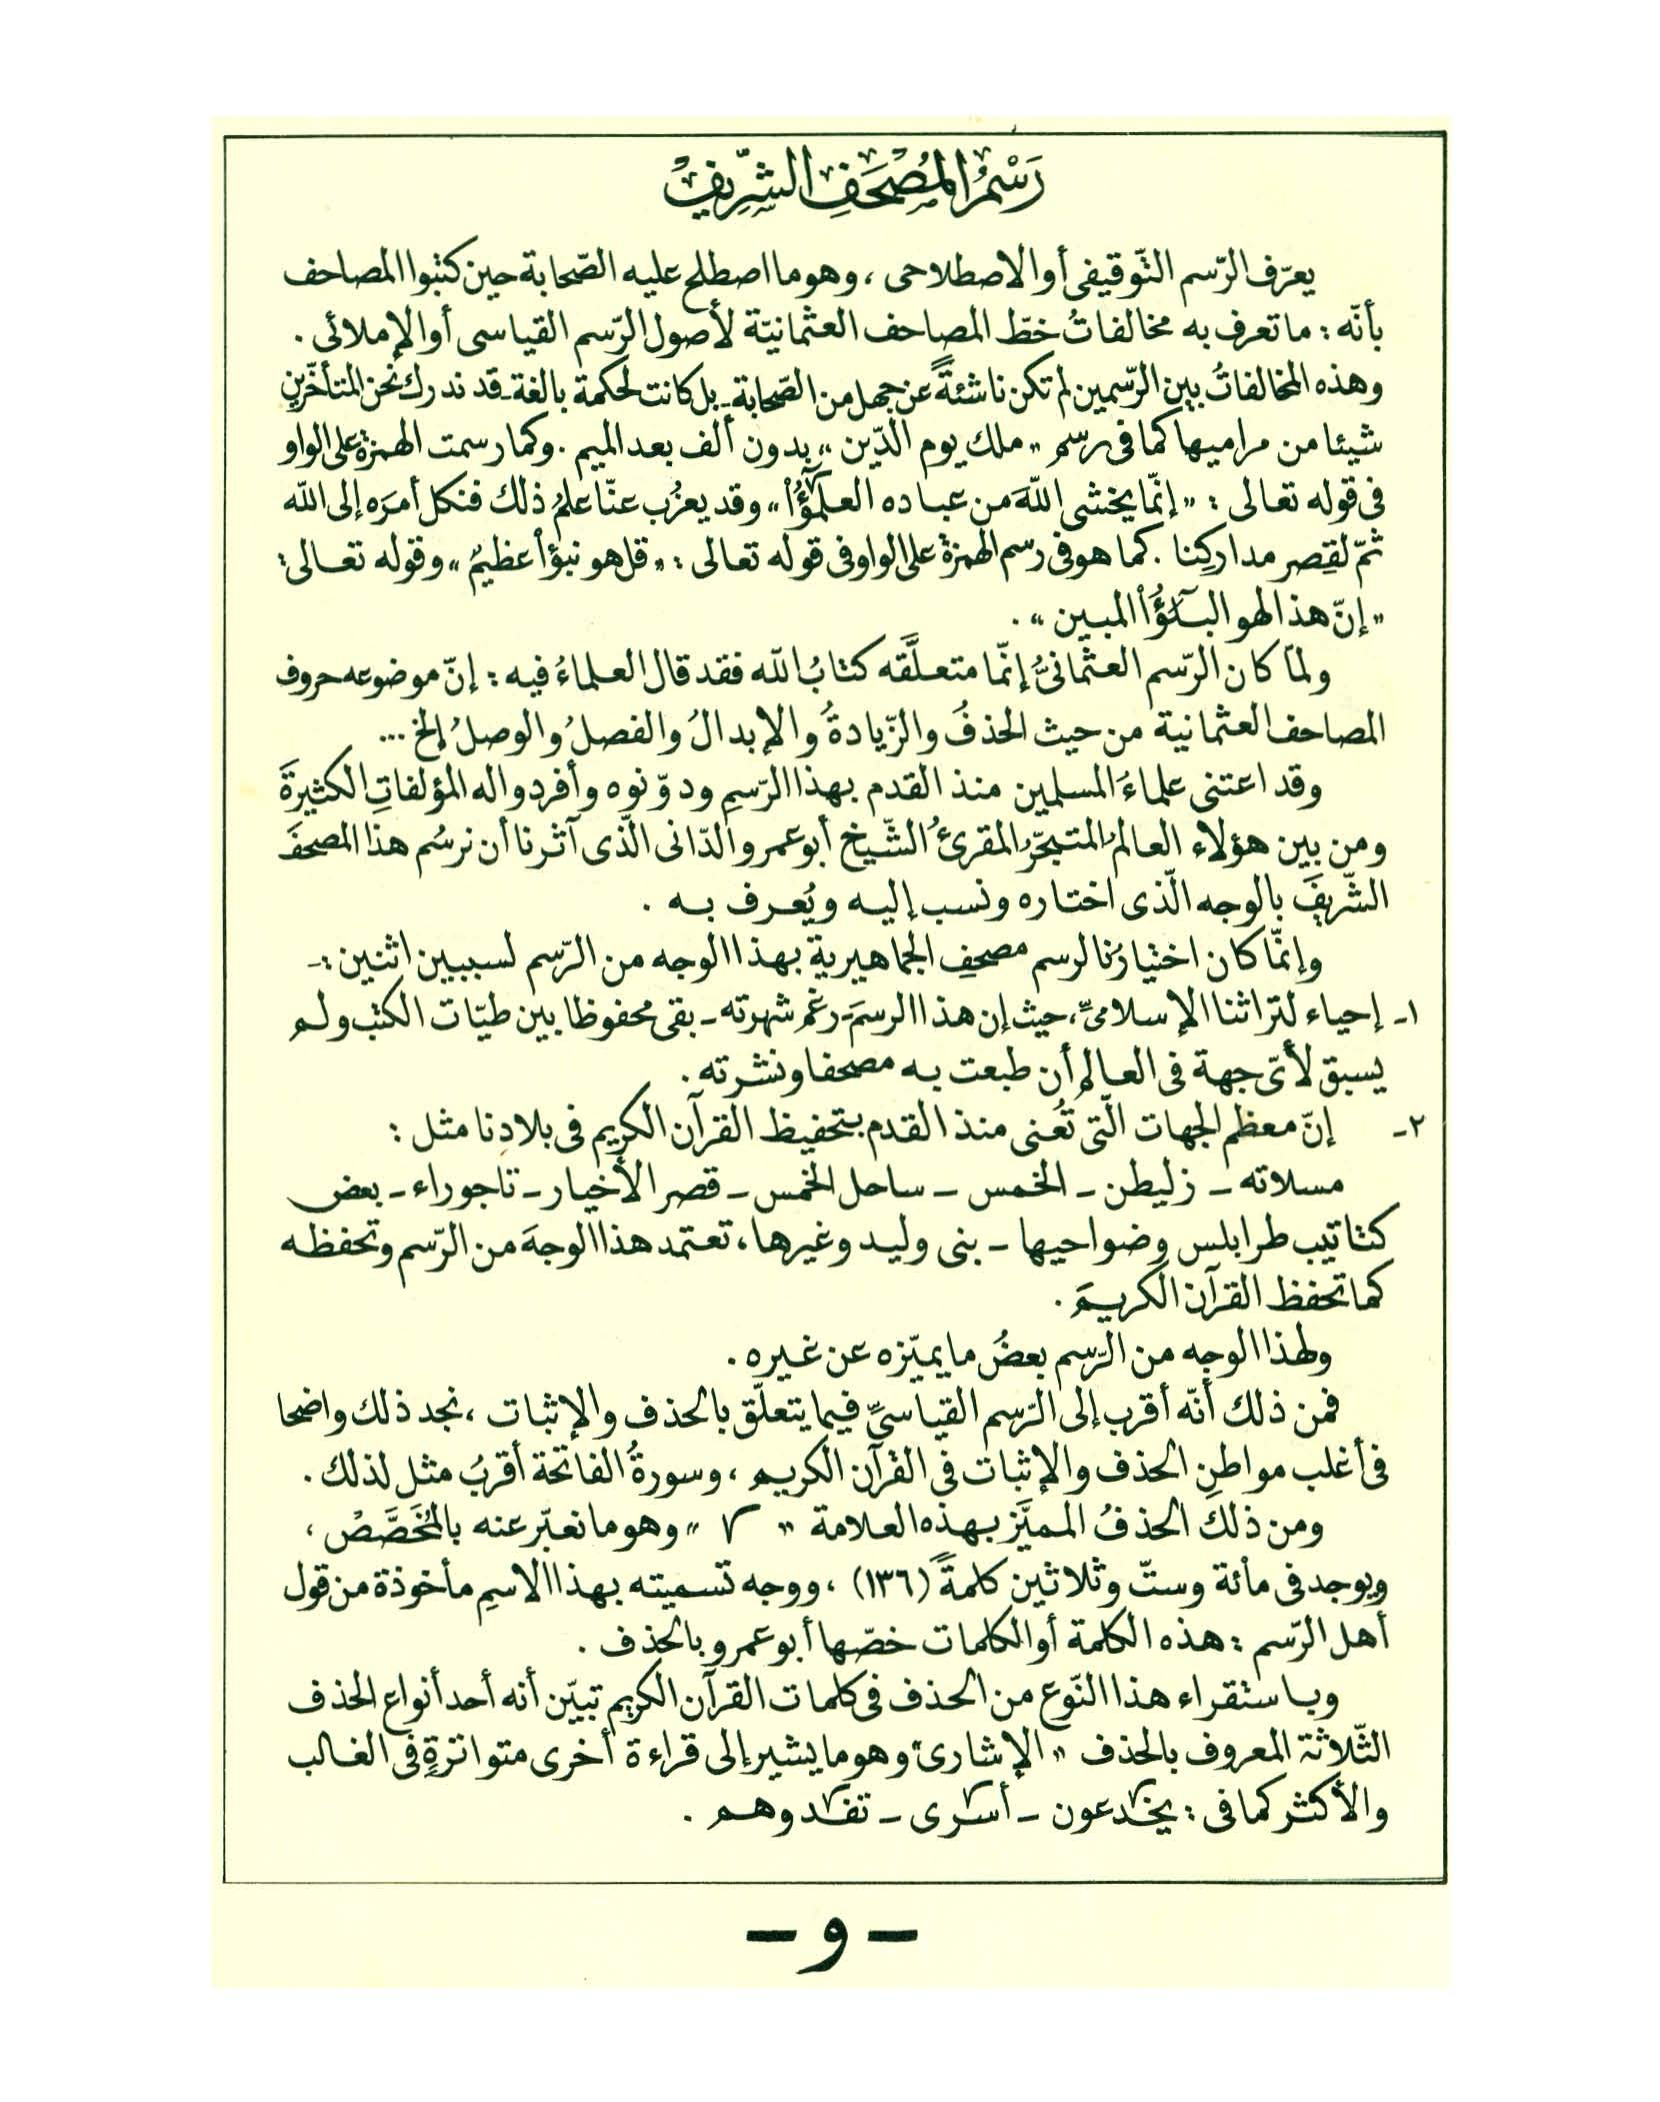 رَسْمُ المُصْحَفِ الشِّرِيفِ
يعرّف الرّسم التّوقيفى أو الاصطلاحى ، وهو ما اصطلح عليه الصّحابة حين كتبوا المصاحف
بأنّه : ما تعرف به مخالفاتُ خطّ المصاحف العثمانيّة لأصول الرّسم القياسى أو الإملائى .
وهذه المخالفاتُ بين الرّسمين لم تكن ناشئةً عن جهل من الصّحابة ـ بل كانت لحكمة بالغة ـ قد ندرك نحن المتأخّرين
شيئا من مراميها كما فى رسم « ملك يوم الدّين » بدون ألف بعد الميم . وكما رسمت الهمزة على الواو
فى قوله تعالى : « إنّما يخشى اللّهَ من عباده العلمٰٓؤُا » وقد يعزُب عنّا علمُ ذلك فنكل أمرَه إلى اللّه
ثمّ لقِصر مداركِنا . كما هو فى رسم الهمزة على الواو فى قوله تعالى : « قل هو نبؤا عظيمٌ » وقوله تعالى :
« إنّ هذا لهو البلٰٓؤُا المبين » .
ولمّا كان الرّسم العثمانىُّ إنّما متعلَّقه كتابُ اللّه فقد قال العلماءُ فيه : إنّ موضوعه حروف
المصاحف العثمانية من حيث الحذفُ والزّيادةُ والإبدالُ والفصلُ والوصلُ إلخ ...
وقد اعتنى علماءُ المسلمين منذ القدم بهذا الرّسمِ ودوّنوه وأفردوا له المؤلفاتِ الكثيرةَ
ومن بين هؤلاء العالمُ المتبحّرُ المقرئُ الشّيخ أبو عمرو الدّانى الّذى آثرنا أن نرسُم هذا المصحفَ
الشّريفَ بالوجه الّذى اختاره ونسب إليه ويُعرف به .
وإنّما كان اختيارُنا لرسم مصحفِ الجماهيرية بهذا الوجه من الرّسم لسببين اثنين :ـ
١ـ إحياء لتراثنا الإسلامىِّ ، حيث إن هذا الرسمَ ـ رغم شهرته ـ بقى محفوظا بين طيّات الكتب ولم
يسبق لأىّ جهة فى العالم أن طبعت به مصحفا ونشرته .
٢ـ إنّ معظم الجهات الّتى تُعنى منذ القدم بتحفيظ القرآن الكريم فى بلادِنا مثل :
مسلاته ـ زليطن ـ الخمس ـ ساحل الخمس ـ قصر الأخيار ـ تاجوراء ـ بعض
كتاتيب طرابلس وضواحيها ـ بنى وليد وغيرها ، تعتمد هذا الوجهَ من الرّسم وتحفظه
كما تحفظ القرآن الكريمَ .
ولهذا الوجه من الرّسم بعضُ ما يميّزه عن غيره .
فمن ذلك أنّه أقرب إلى الرّسم القياسىِّ فيما يتعلّق بالحذف والإثبات ، نجد ذلك واضحا
فى أغلب مواطنِ الحذف والإثبات فى القرآن الكريم ، وسورةُ الفاتحة أقربُ مثل لذلك .
ومن ذلك الحذفُ المميَّز بهذه العلامة « » وهو ما نعبّر عنه بالمُخَصَّصْ ،
ويوجد فى مائة وستّ وثلاثين كلمةً (١٣٦) ، ووجه تسميته بهذا الاسمِ مأخوذة من قول
أهل الرّسم : هذه الكلمة أو الكلمات خصّها أبو عمرو بالحذف .
وباستقراء هذا النّوع من الحذف فى كلمات القرآن الكريم تبيّن أنه أحد أنواع الحذف
الثّلاثة المعروف بالحذف « الإشارى » وهو ما يشير إلى قراءة أخرى متواترةٍ فى الغالب
والأكثر كما فى : يخٰدعون ـ أسٰرى ـ تفٰدوهم .
ـ و ـ